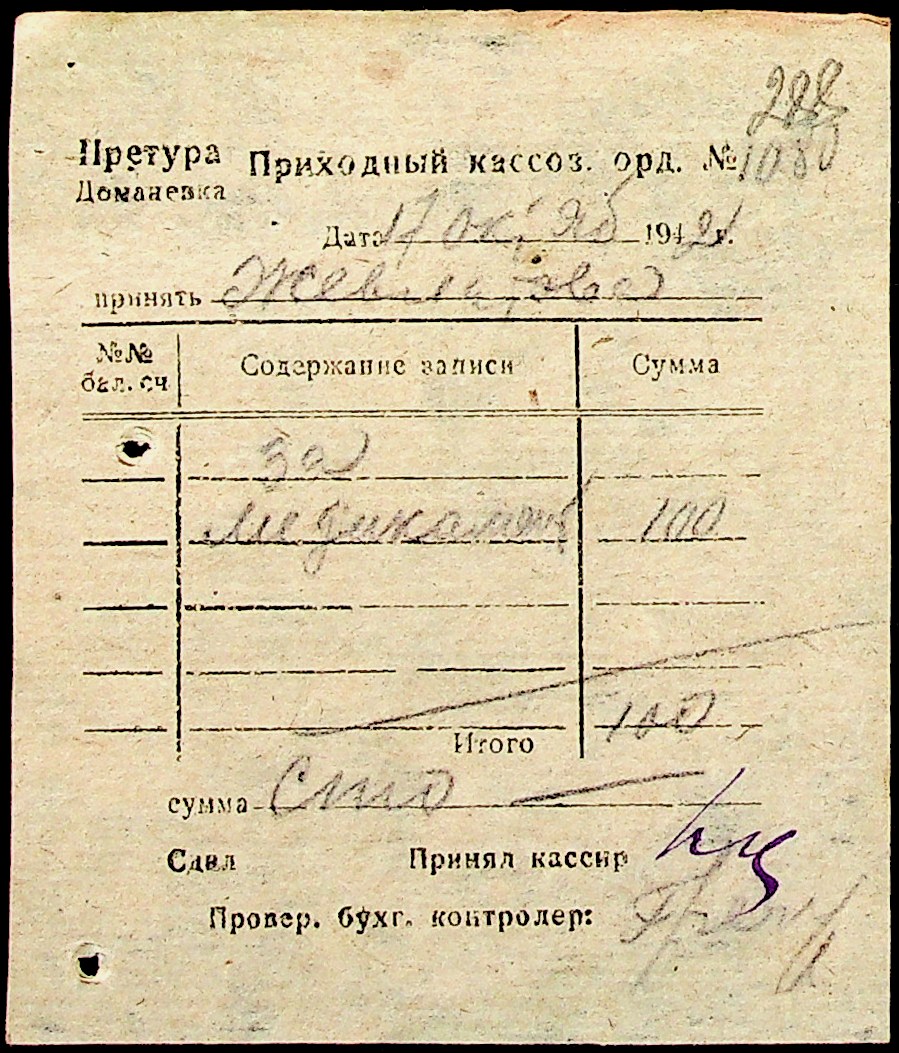 288
Претура Приходный кассов. орд. № 1080
Доманевка
Дата 17 октяб 194 г.
принять
№№ бал. сч Содержание записи Сумма
за
медикамент 100
Итого 100
сумма Сто
Сдал Принял кассир
Провер. бухг. контролер: